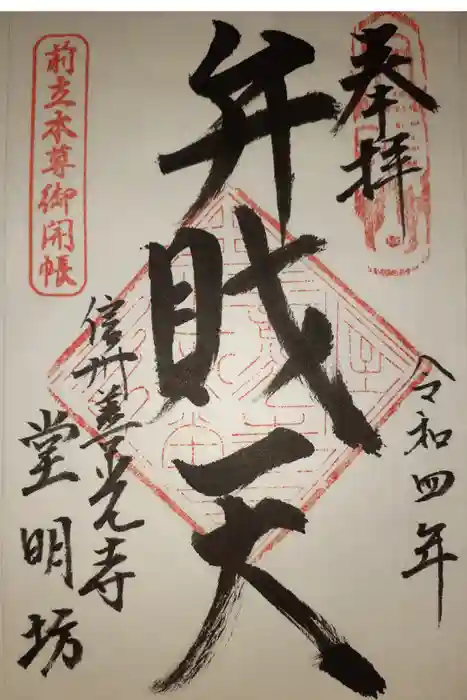 奉拝
令和四年
弁財天
前立本尊御開帳
信州善光寺
堂明坊